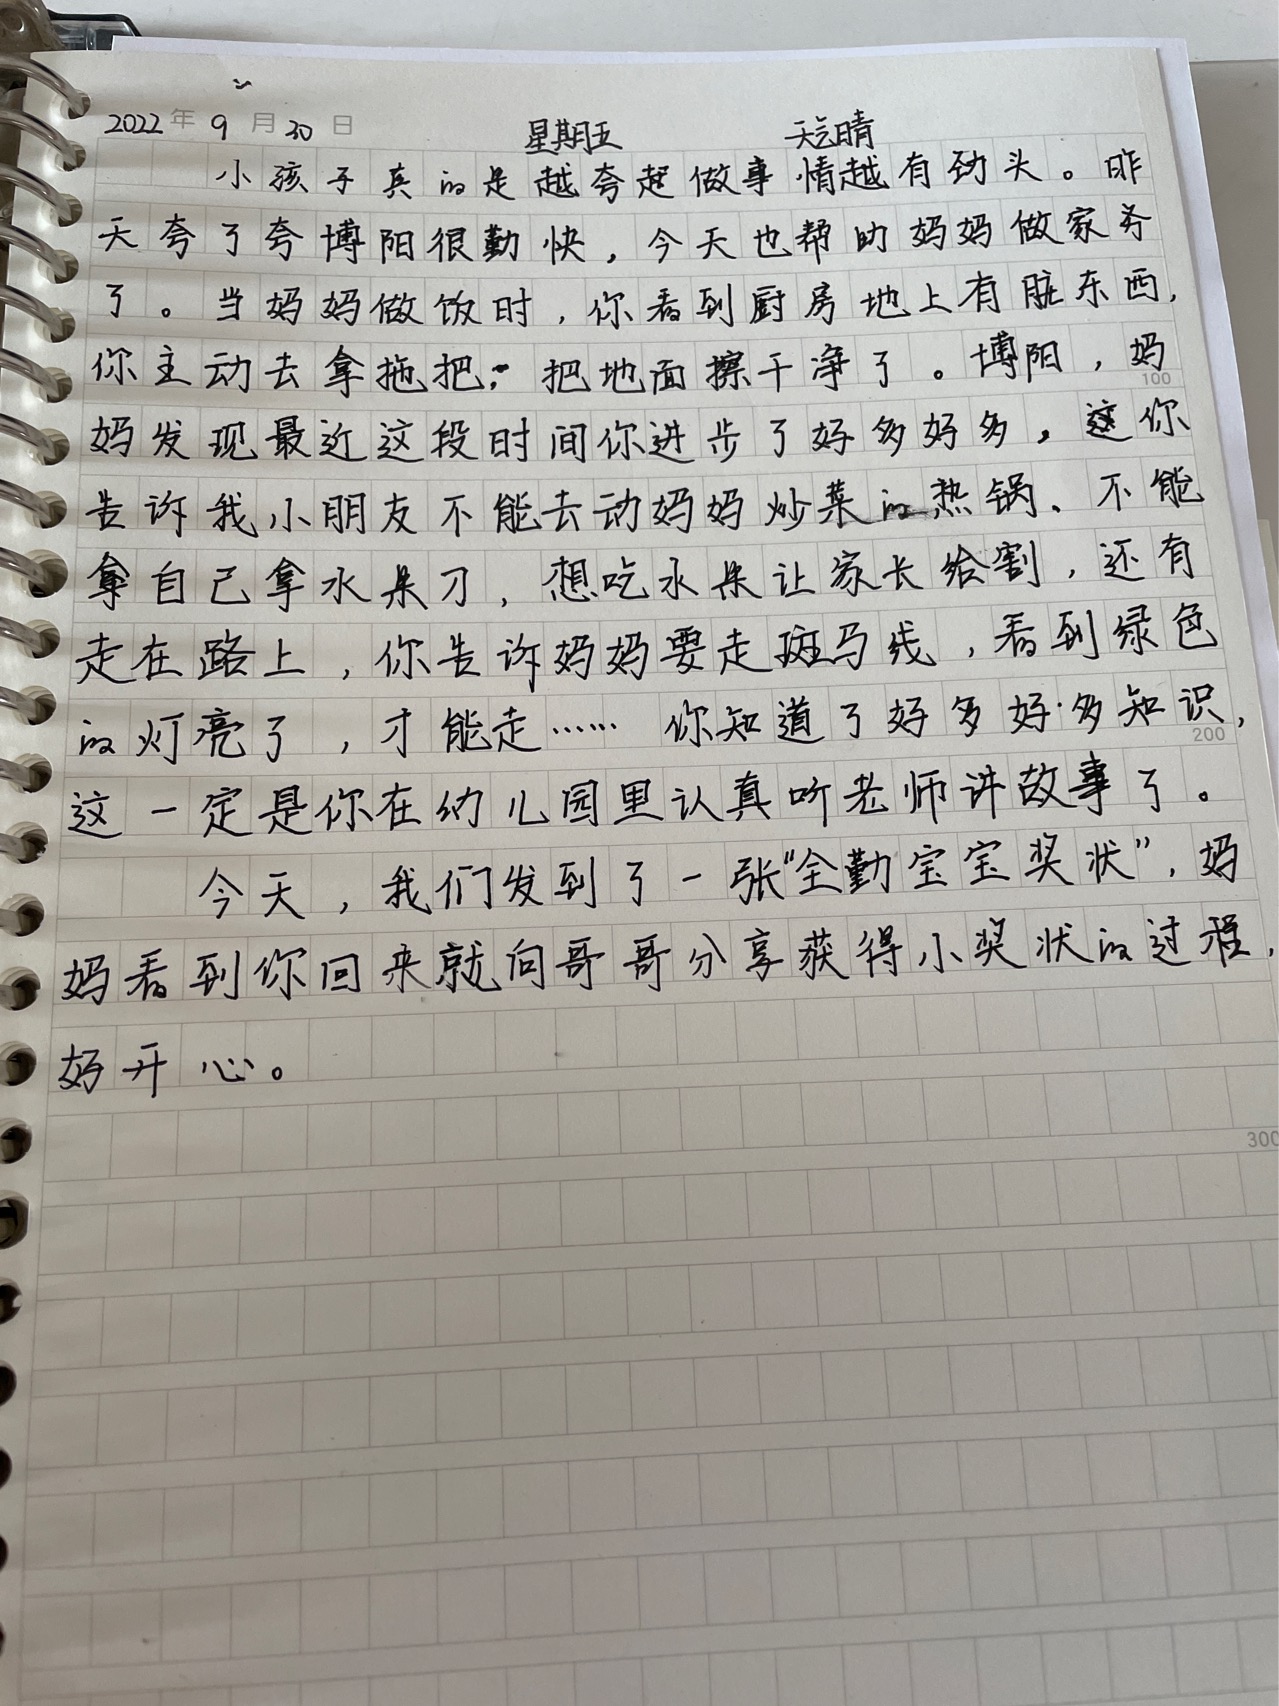 2022年 9月30日 星期五 天气晴
小孩子真的是越夸起做事情越有劲头。昨
天夸了夸博阳很勤快，今天也帮助妈妈做家务
了。当妈妈做饭时，你看到厨房地上有脏东西，
你主动去拿拖把，把地面擦干净了。博阳，妈
100
妈发现最近这段时间你进步了好多好多。这你
告诉我小朋友不能去动妈妈炒菜的热锅、不能
拿自己拿水果刀，想吃水果让家长给割，还有
走在路上，你告诉妈妈要走斑马线，看到绿色
的灯亮了，才能走……你知道了好多好多知识，
200
这一定是你在幼儿园里认真听老师讲故事了。
今天，我们发到了一张“全勤宝宝奖状”，妈
妈看到你回来就向哥哥分享获得小奖状的过程，
好开心。
300